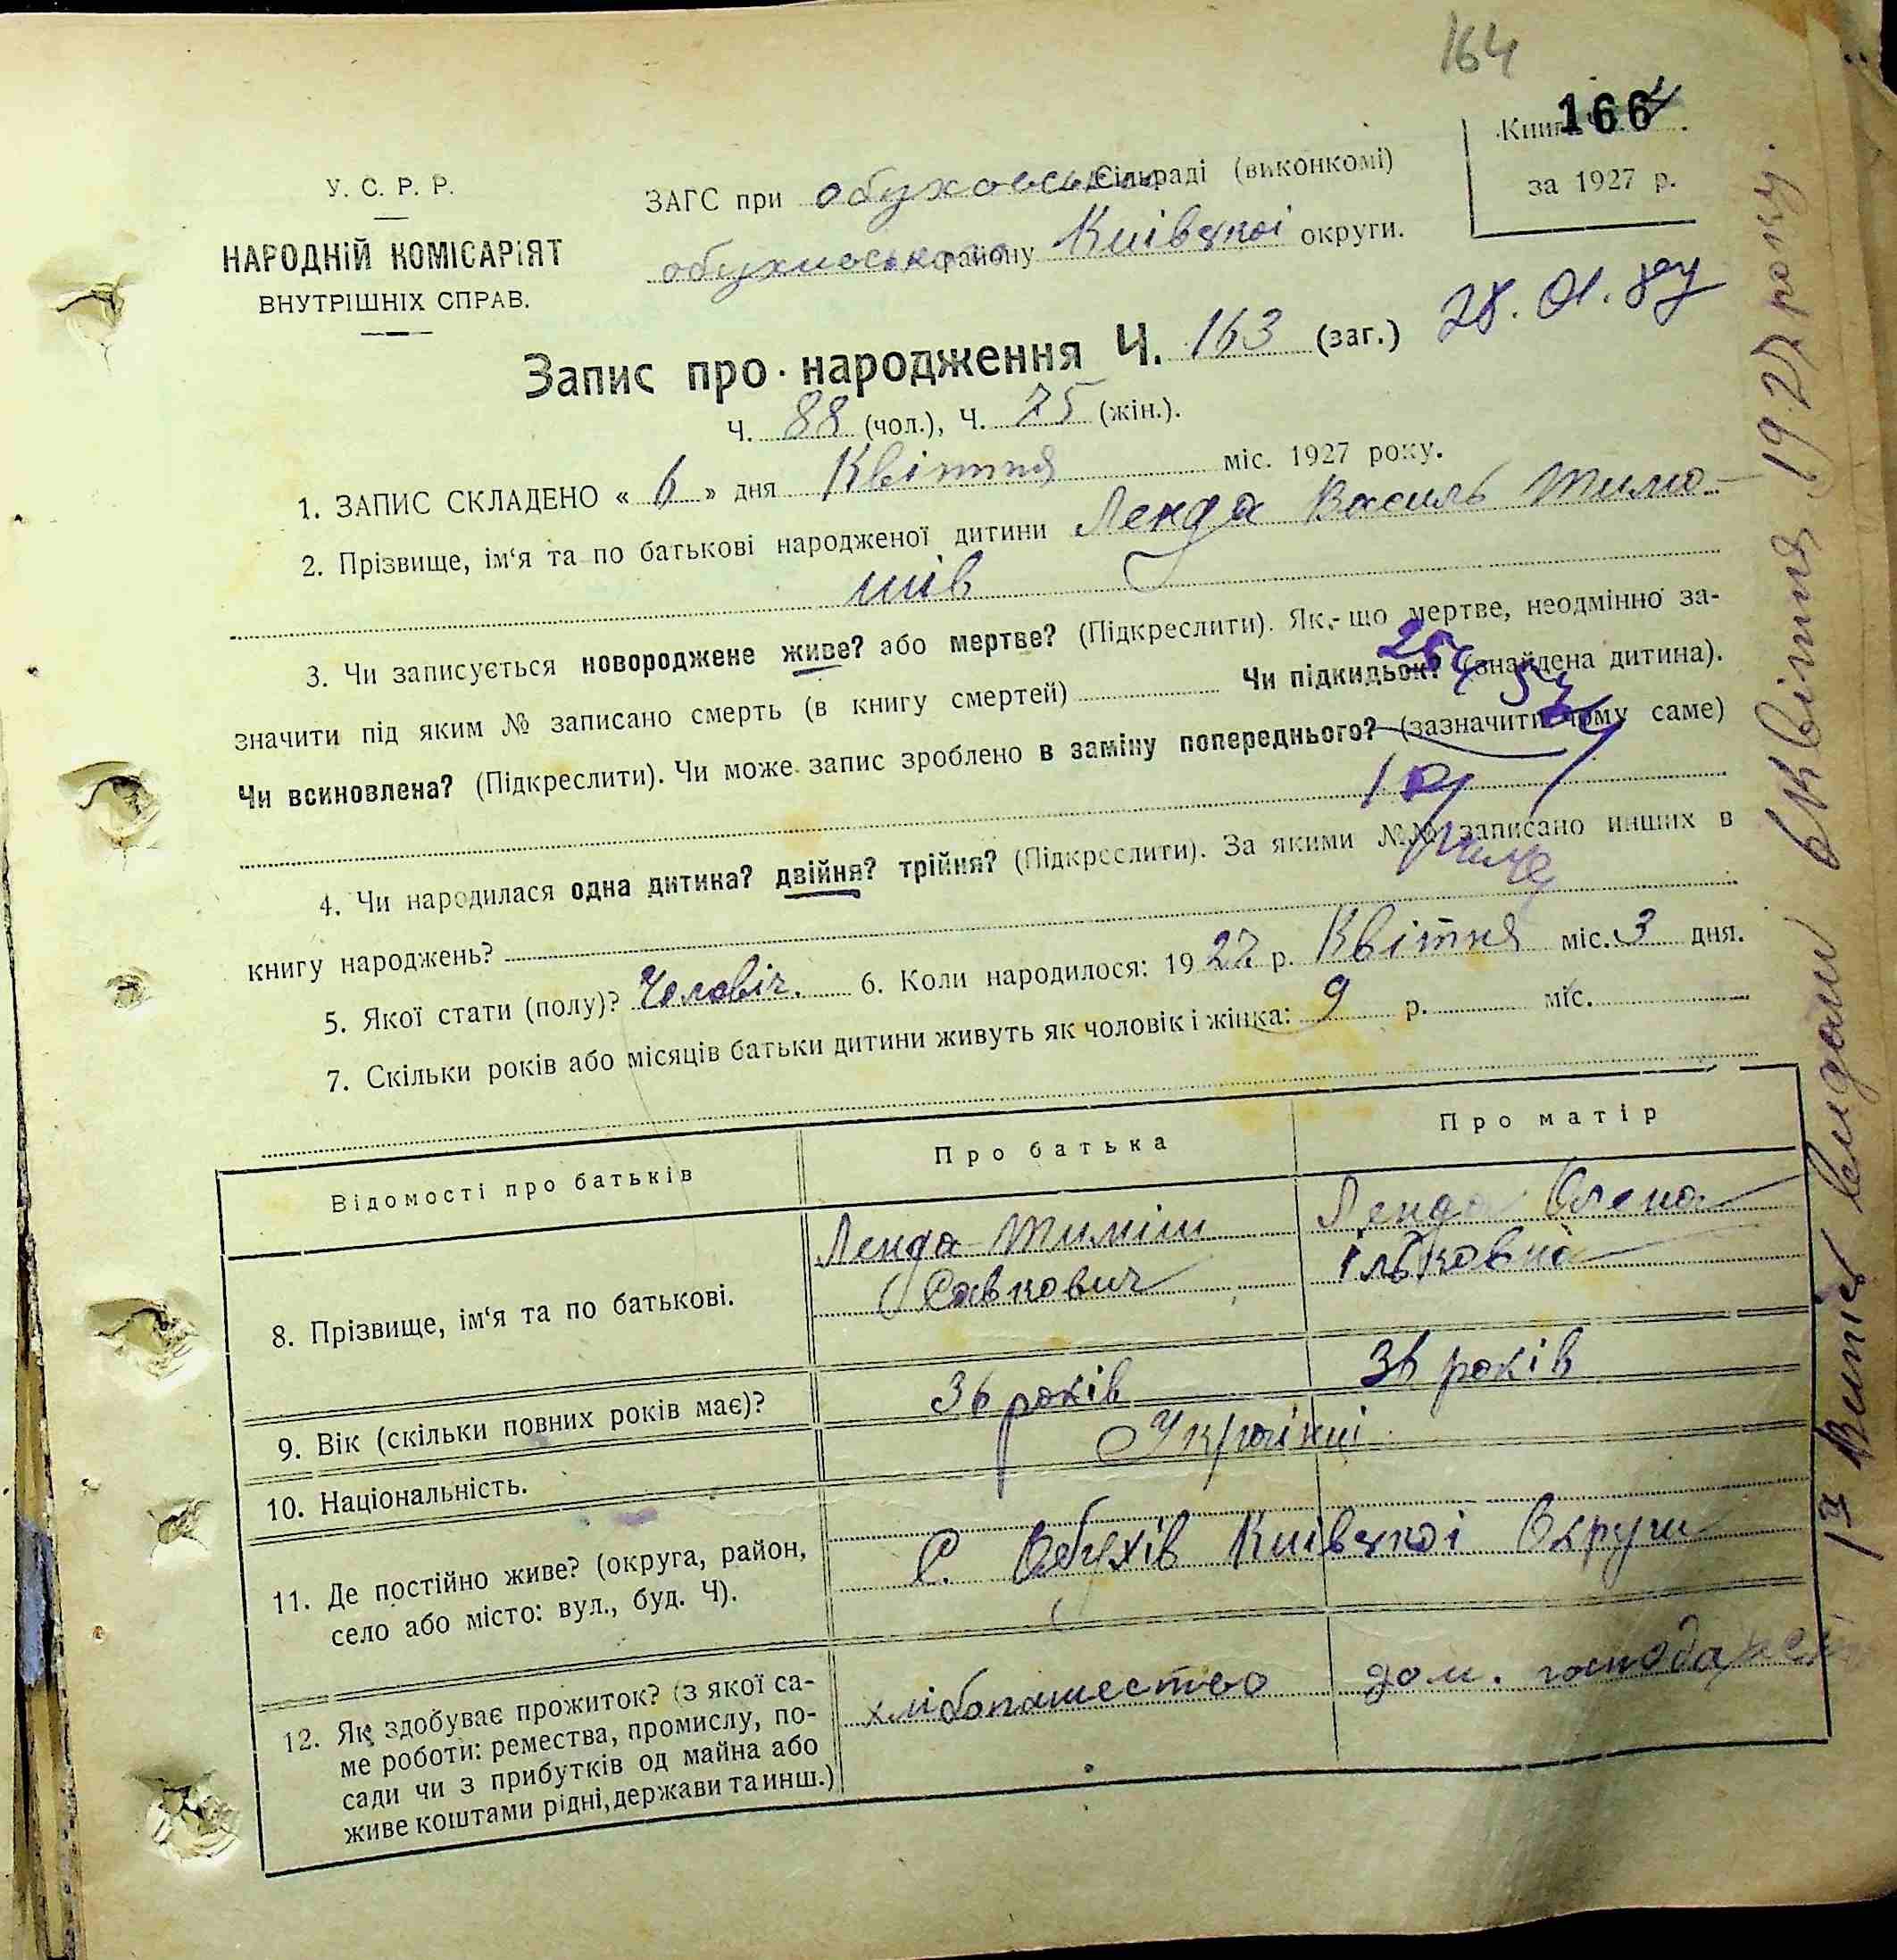 164
166
Книга
за 1927 р.
У. С. Р. Р.
НАРОДНІЙ КОМІСАРІЯТ
ВНУТРІШНІХ СПРАВ.
ЗАГС при обуховській Сільраді (виконкомі)
обухівського району Київської округи.
28. 01.
Запис про народження Ч. 163 (заг.)
Ч. 88 (чол.), Ч. 75 (жін.).
1. ЗАПИС СКЛАДЕНО « 6 » дня Квітня міс. 1927 року.
2. Прізвище, ім‘я та по батькові народженої дитини Ленда Василь Тимо-
шів
3. Чи записується новороджене живе? або мертве? (Підкреслити). Як-що мертве, неодмінно за-
значити під яким № записано смерть (в книгу смертей) Чи підкидьок? (знайдена дитина).
Чи всиновлена? (Підкреслити). Чи може запис зроблено в заміну попереднього? (зазначити чому саме)
4. Чи народилася одна дитина? двійня? трійня? (Підкреслити). За якими №№ записано инших в
книгу народжень?
5. Якої стати (полу)? Чоловіч. 6. Коли народилося: 1927 р. Квітня міс. 3 дня.
7. Скільки років або місяців батьки дитини живуть як чоловік і жінка: 9 р. міс.
Відомості про батьків Про батька Про матір
8. Прізвище, ім‘я та по батькові. Ленда Тиміш Ленда Олена
Савкович Ільковна
9. Вік (скільки повних років має)? 36 років 36 років
10. Національність. Українці
11. Де постійно живе? (округа, район, С. Обухів Київської Округи
село або місто: вул., буд. Ч).
12. Як здобуває прожиток? (з якої са- хлібопашество дом. господарст
ме роботи: ремества, промислу, по-
сади чи з прибутків од майна або
живе коштами рідні, держави та инш.)
Витяг видано 6 Квітня 1927 року.